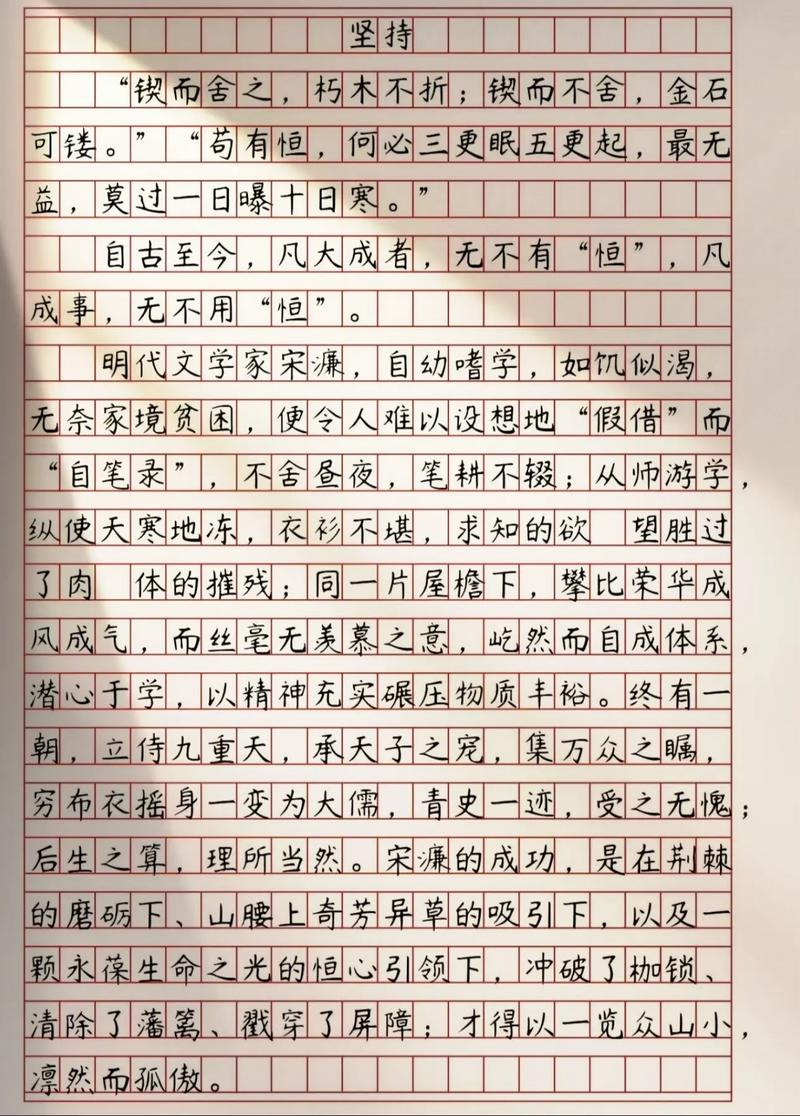 坚持
“锲而舍之，朽木不折；锲而不舍，金石
可镂。”“苟有恒，何必三更眠五更起，最无
益，莫过一日曝十日寒。”
自古至今，凡大成者，无不有“恒”，凡
成事，无不用“恒”。
明代文学家宋濂，自幼嗜学，如饥似渴，
无奈家境贫困，便令人难以设想地“假借”而
“自笔录”，不舍昼夜，笔耕不辍；从师游学，
纵使天寒地冻，衣衫不堪，求知的欲 望胜过
了肉 体的摧残；同一片屋檐下，攀比荣华成
风成气，而丝毫无羡慕之意，屹然而自成体系，
潜心于学，以精神充实碾压物质丰裕。终有一
朝，立侍九重天，承天子之宠，集万众之瞩，
穷布衣摇身一变为大儒，青史一迹，受之无愧；
后生之算，理所当然。宋濂的成功，是在荆棘
的磨砺下、山腰上奇芳异草的吸引下，以及一
颗永葆生命之光的恒心引领下，冲破了枷锁、
清除了藩篱、戳穿了屏障；才得以一览众山小，
凛然而孤傲。